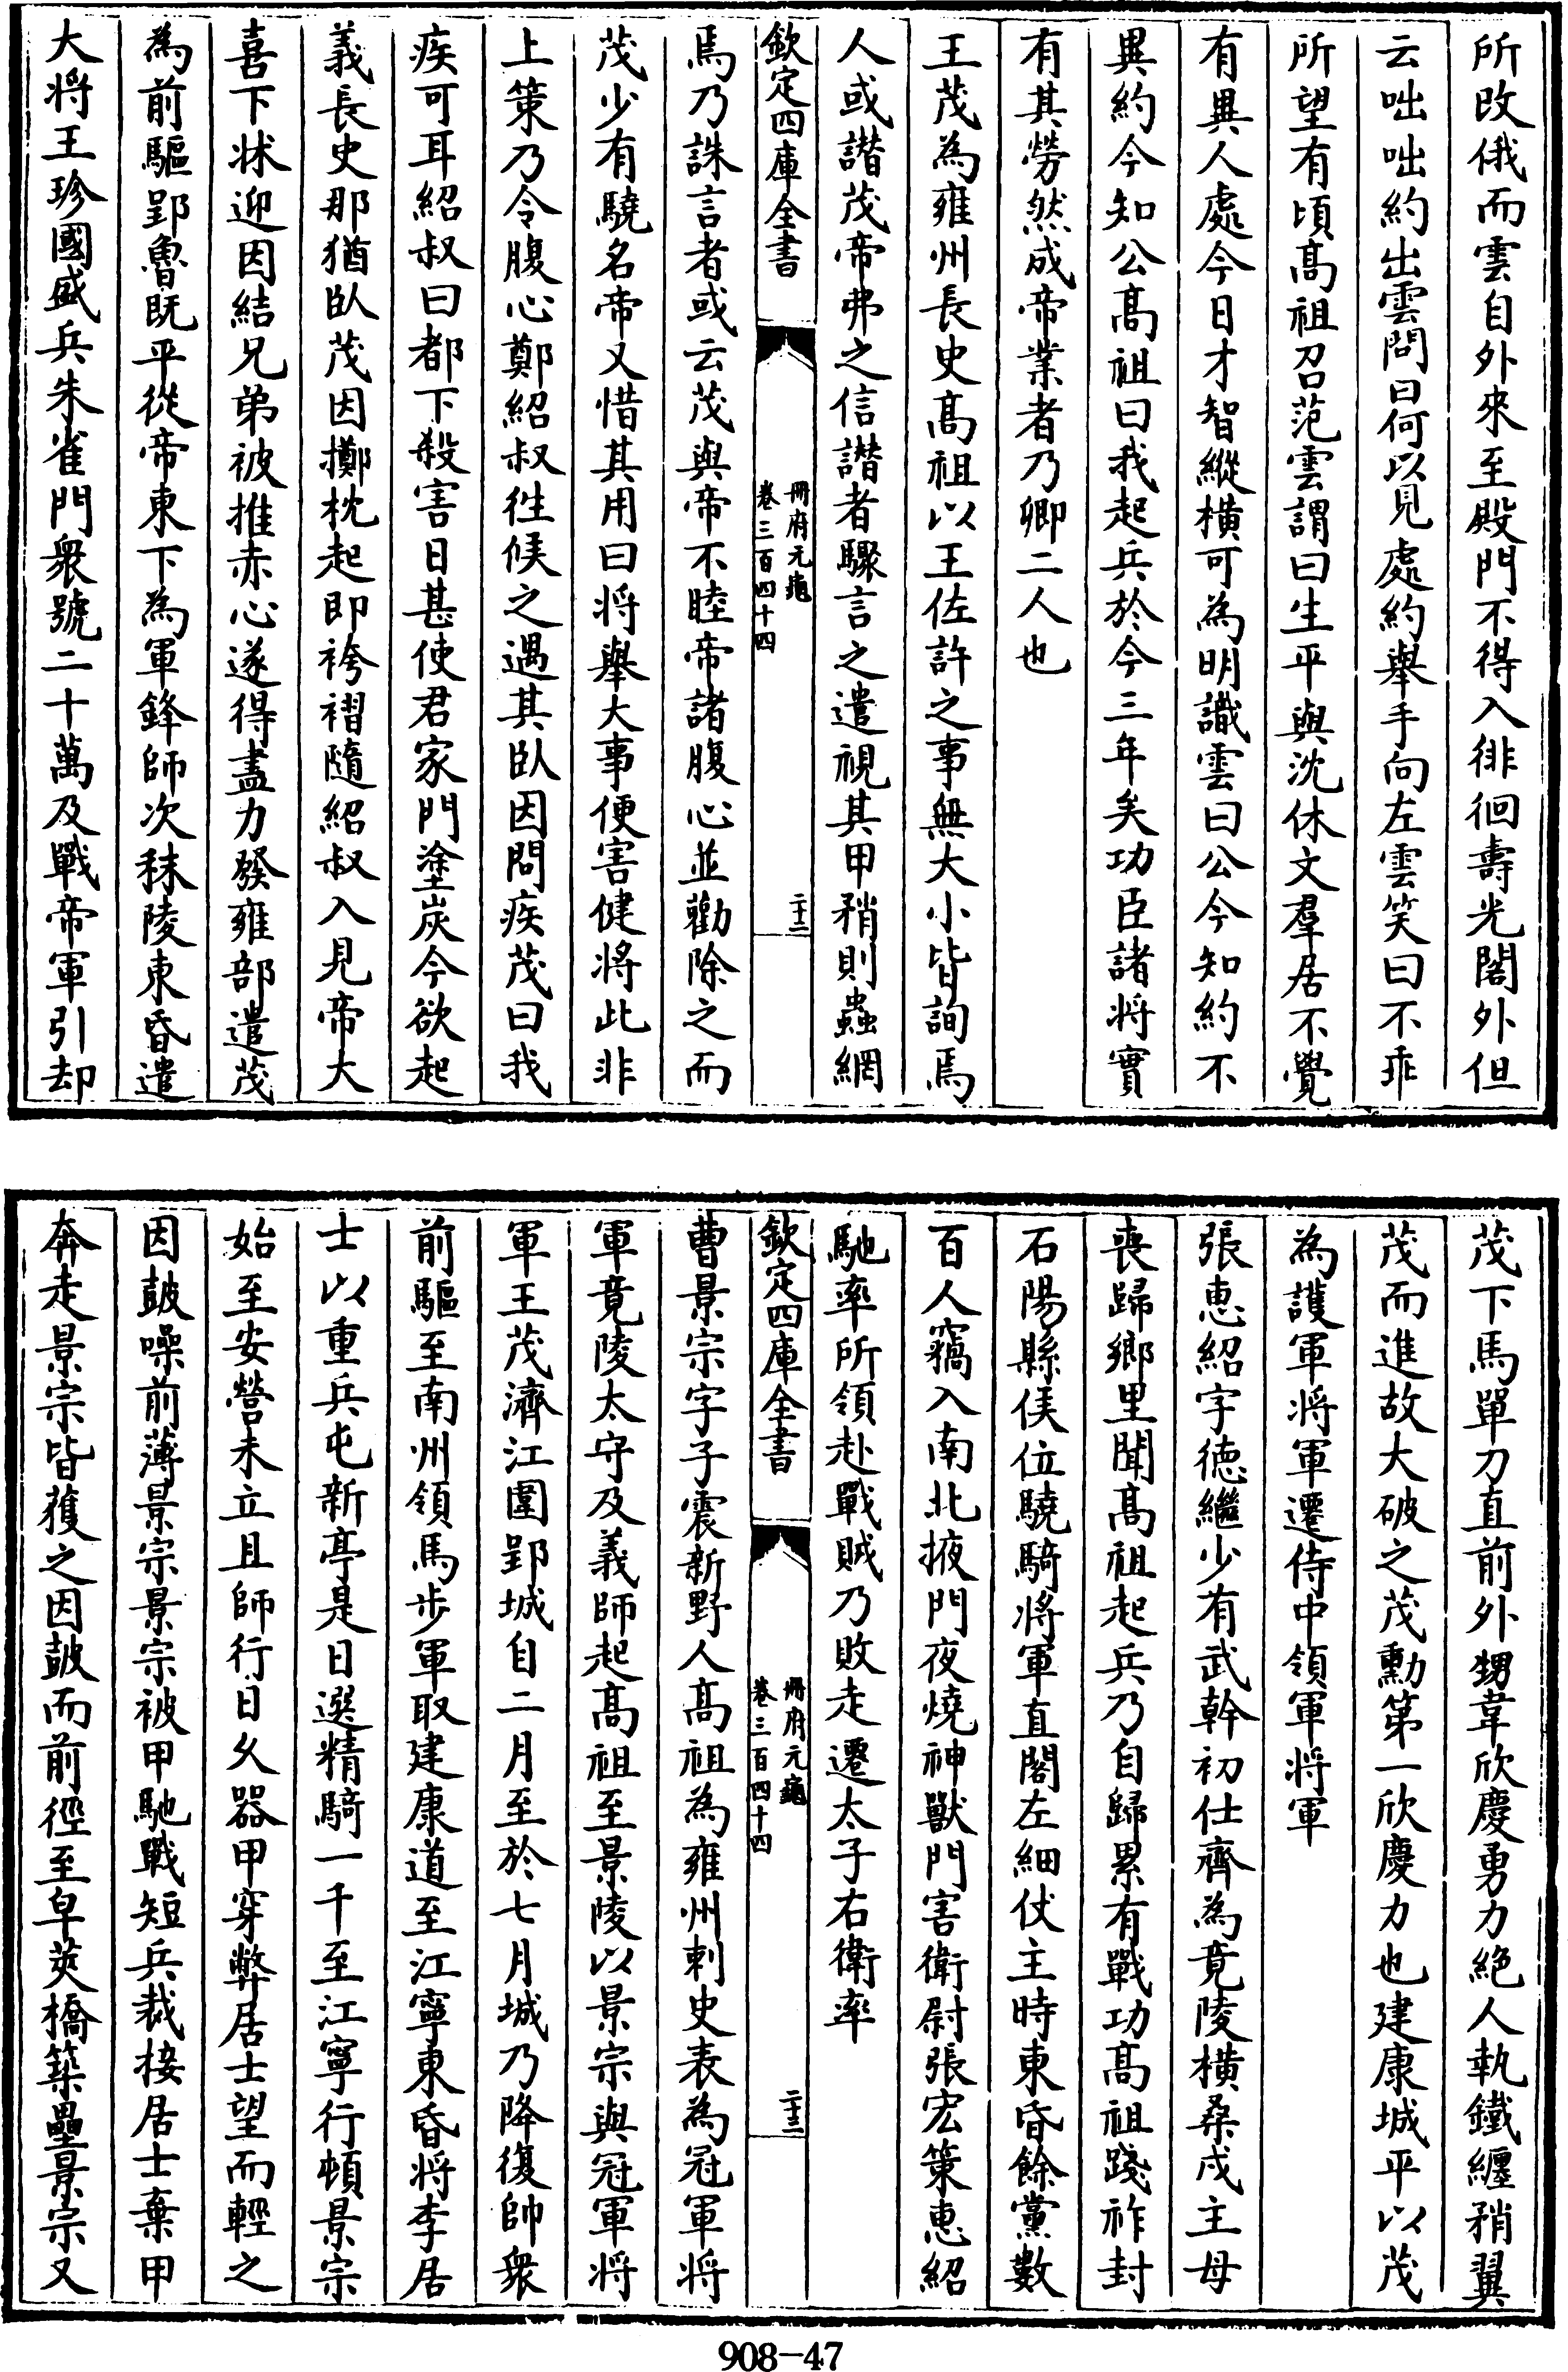 所改俄而雲自外來至殿門不得入徘徊壽光閣外但
云咄咄約出雲問曰何以見處約舉手向左雲笑曰不乖
所望有頃髙祖召范雲謂曰生平與沈休文羣居不覺
有異人處今日才智縱橫可為明識雲曰公今知約不
異約今知公髙祖曰我起兵於今三年矣功臣諸將實
有其勞然成帝業者乃卿二人也
王茂為雍州長史髙祖以王佐許之事無大小皆詢焉
人或譖茂帝弗之信譖者驟言之遣視其甲矟則蟲網
欽定四庫全書
冊府元龜
卷三百四十四
二十二
焉乃誅言者或云茂與帝不睦帝諸腹心並勸除之而
茂少有驍名帝又惜其用曰将舉大事便害健将此非
上策乃令腹心鄭紹叔徃候之遇其卧因問疾茂曰我
疾可耳紹叔曰都下殺害日甚使君家門塗炭今欲起
義長史那猶卧茂因擲枕起即袴褶隨紹叔入見帝大
喜下牀迎因結兄弟被推赤心遂得盡力發雍部遣茂
為前驅郢魯既平從帝東下為軍鋒師次秣陵東昏遣
大將王珍國盛兵朱雀門衆號二十萬及戰帝軍引却
茂下馬單刀直前外甥韋欣慶勇力絶人執鐵纏矟翼
茂而進故大破之茂勳第一欣慶力也建康城平以茂
為護軍将軍遷侍中領軍将軍
張惠紹字徳繼少有武幹初仕齊為竟陵橫桑戍主母
喪歸鄉里聞髙祖起兵乃自歸累有戰功髙祖踐祚封
石陽縣侯位驍騎將軍直閣左細仗主時東昏餘黨數
百人竊入南北掖門夜燒神獸門害衛尉張宏策惠紹
馳率所領赴戰賊乃敗走遷太子右衛率
欽定四庫全書
冊府元龜
卷三百四十四
二十三
曹景宗字子震新野人髙祖為雍州刺史表為冠軍将
軍竟陵太守及義師起髙祖至景陵以景宗與冠軍将
軍王茂濟江圍郢城自二月至於七月城乃降復帥衆
前驅至南州領馬步軍取建康道至江寧東昏将李居
士以重兵屯新亭是日選精騎一千至江寧行頓景宗
始至安營未立且師行日久器甲穿弊居士望而輕之
因鼓噪前薄景宗景宗被甲馳戰短兵裁接居士棄甲
奔走景宗皆獲之因鼓而前徑至皁莢橋築壘景宗又
908-47